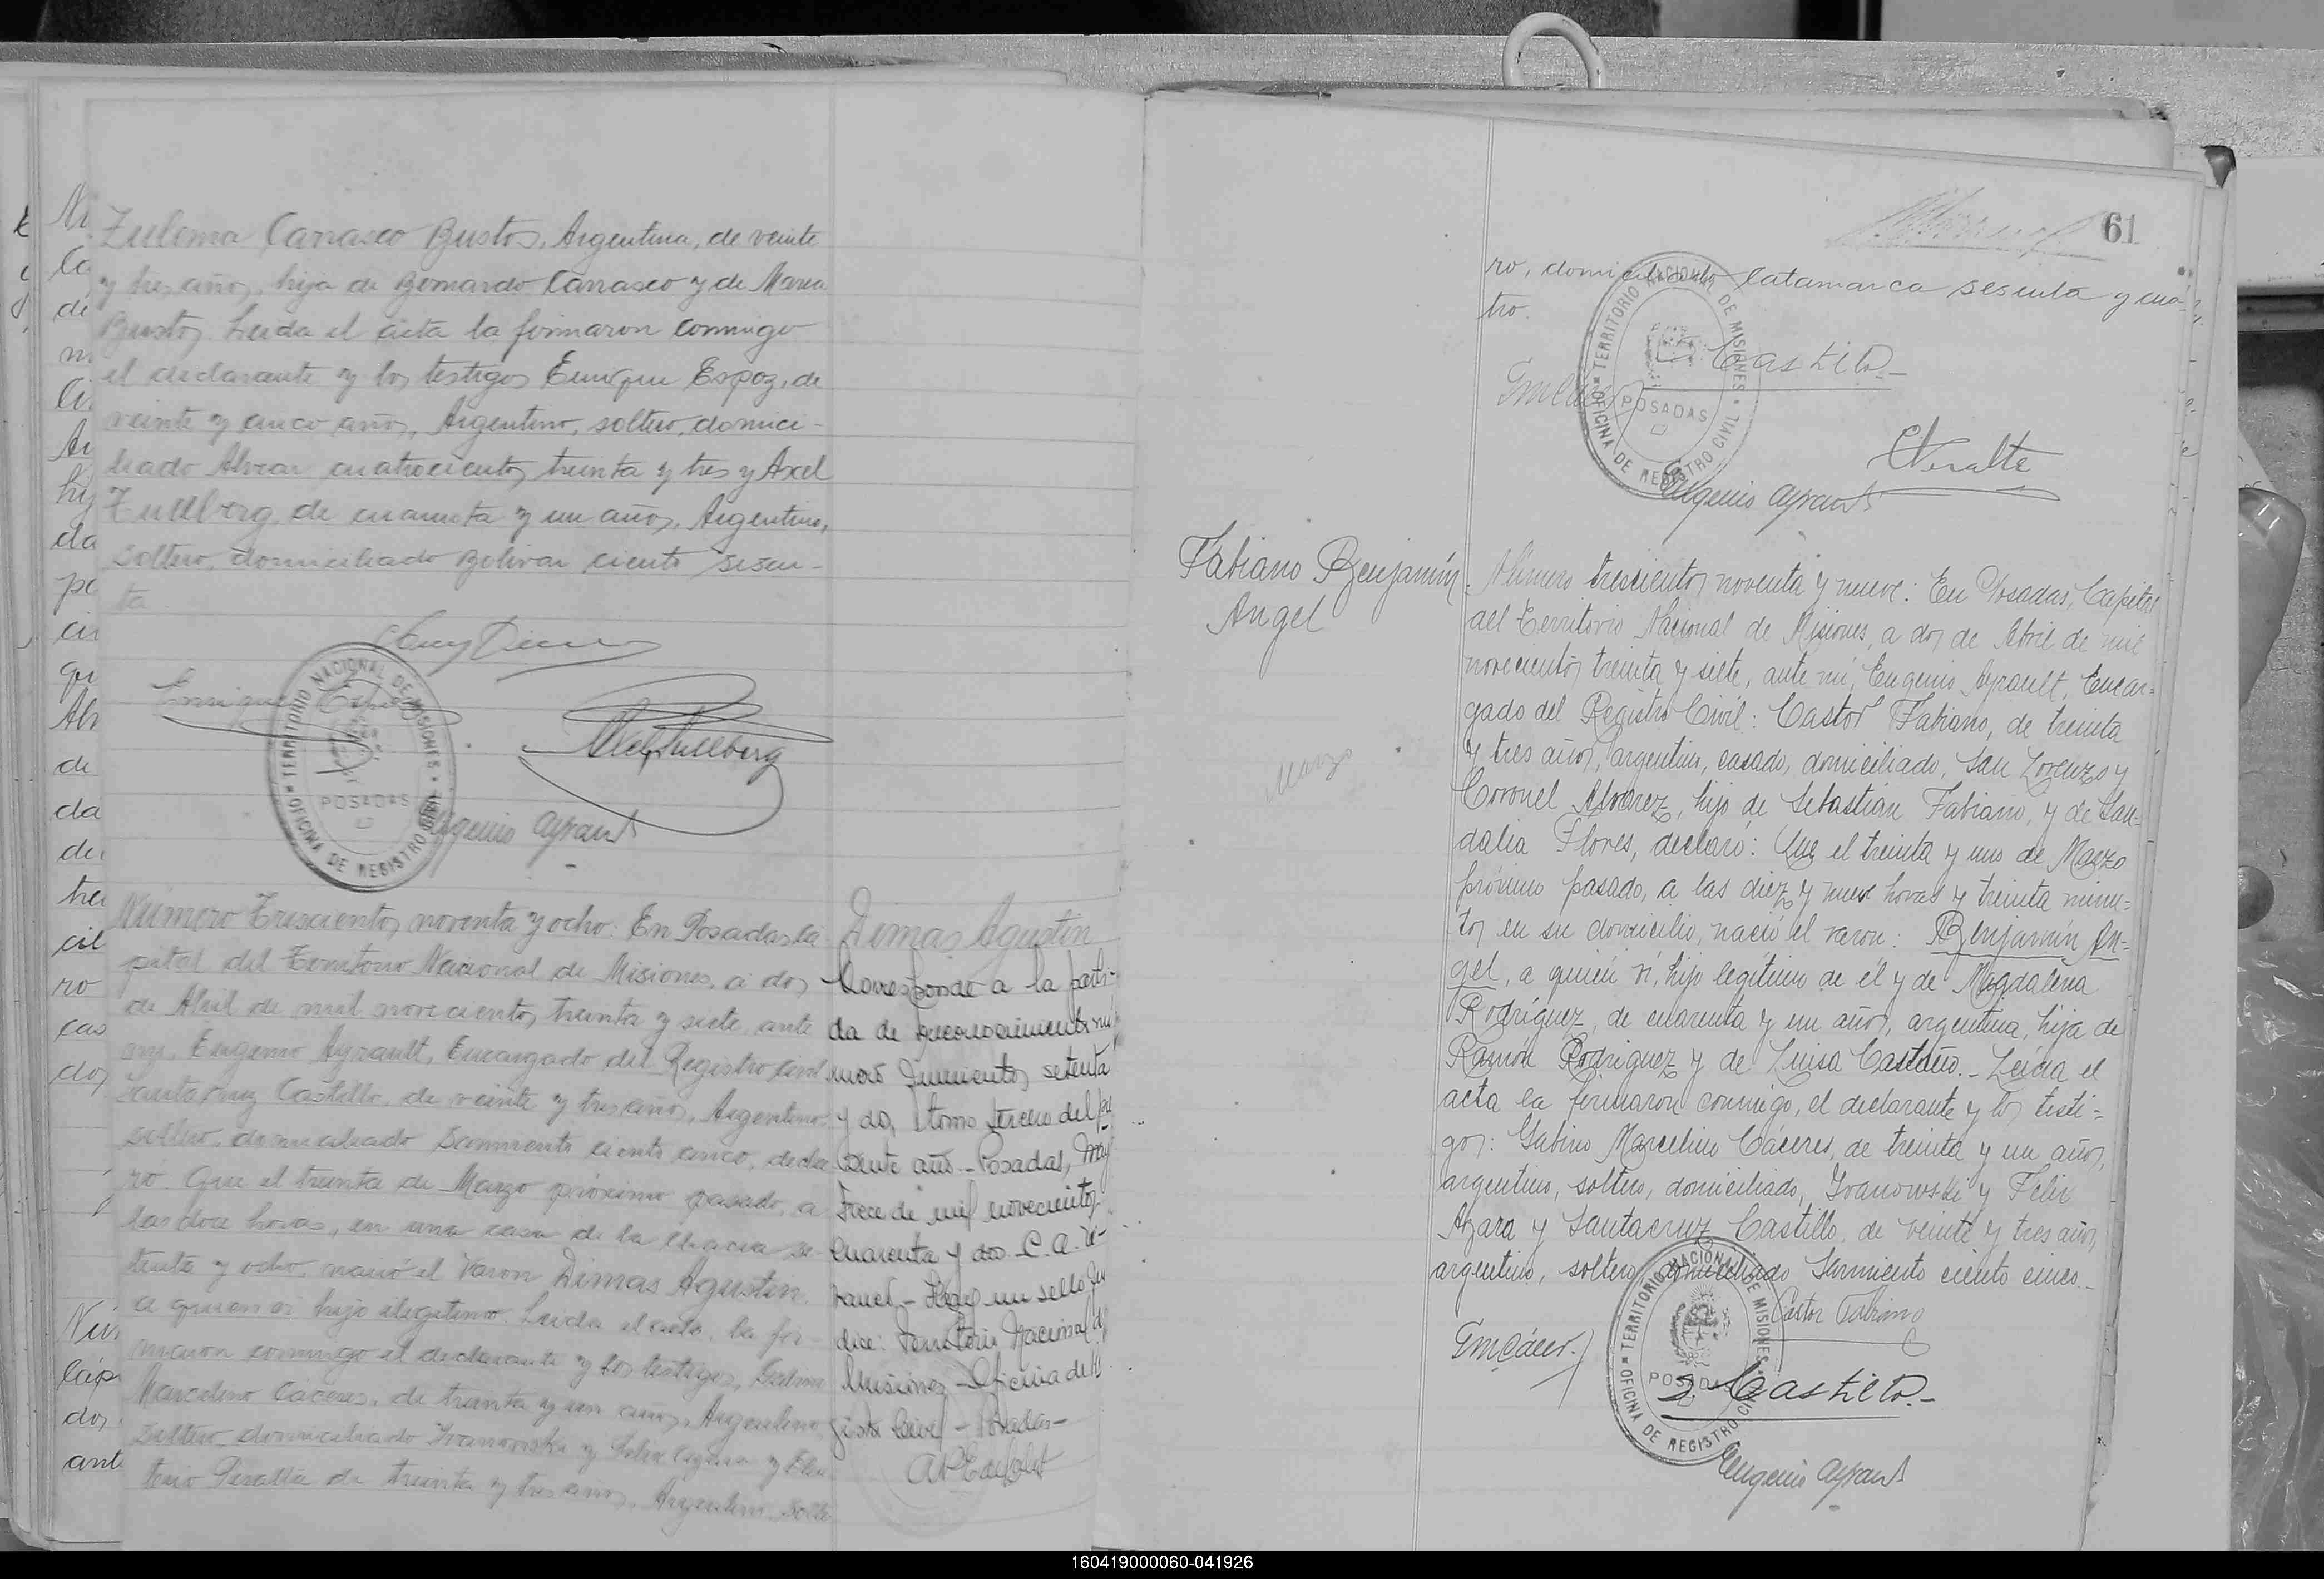 Zulema Carrasco Bustos, Argentina, de veinte
y tres años, hija de Bernardo Carrasco y de Maria
Bustos. Leida el acta la firmaron conmigo
el declarante y los testigos Enrique Espoz, de
veinte y cinco años, Argentino, soltero, domici-
liado Alvear cuatrocientos treinta y tres y Axel
Zullberg, de cuarenta y un años, Argentino,
soltero, domiciliado Bolivar ciento sesen-
ta
Enrique Espoz
Axel Zullberg
TERRITORIO NACIONAL DE MISIONES
POSADAS
OFICINA DE REGISTRO CIVIL
Eugenio Ayrault
Número Trescientos noventa y ocho: En Posadas Ca-
pital del Territorio Nacional de Misiones, a dos
de Abril de mil novecientos treinta y siete, ante
mi, Eugenio Ayrault, Encargado del Registro Civil
Santacruz Castillo, de veinte y tres años, Argentino
soltero, domiciliado Sarmiento ciento cinco, decla
ró. Que el treinta de Marzo próximo pasado, a
las doce horas, en una casa de la chacra se-
tenta y ocho, nació el varon Dimas Agustin
a quien vi hijo ilegitimo. Leida el acta, la fir-
maron conmigo el declarante y los testigos, Gabino
Marcelino Cáceres, de treinta y un años, Argentino
soltero domiciliado Ivanowski y Felix Azara y Eleu
terio Peralta de treinta y tres años, Argentino, solte
Dimas Agustin
Corresponde a la parti-
da de reconocimiento nú
mero quinientos setenta
y dos, tomo tercero del pre
sente año.- Posadas, May
trece de mil novecientos
cuarenta y dos - C. A.
Hay un sello que
dice: Territorio Nacional de
Misiones - Oficina de Re
gistro Civil - Posadas -
61
ro, domiciliado Catamarca sesenta y cua-
tro.
Castillo.-
GMCáceres
TERRITORIO NACIONAL DE MISIONES
POSADAS
OFICINA DE REGISTRO CIVIL
EPeralta
Eugenio Ayrault
Fabiano Benjamín
Angel
Marzo
Número trescientos noventa y nueve: En Posadas, Capital
del Territorio Nacional de Misiones, a dos de Abril de mil
novecientos treinta y siete, ante mí, Eugenio Ayrault, Encar=
gado del Registro Civil: Castor Fabiano, de treinta
y tres años, argentino, casado, domiciliado, San Lorenzo y
Coronel Alvarez, hijo de Sebastián Fabiano, y de San=
dalia Flores, declaró: Que el treinta y uno de Marzo
próximo pasado, a las diez y nueve horas y treinta minu=
tos en su domicilio, nació el varon: Benjamín An=
gel, a quien vi, hijo legítimo de él y de Magdalena
Rodríguez, de cuarenta y un años, argentina, hija de
Ramón Rodríguez y de Luisa Castaño.- Leída el
acta la firmaron conmigo, el declarante y los testi=
gos: Gabino Marcelino Cáceres, de treinta y un años,
argentino, soltero, domiciliado, Ivanowski y Felix
Azara y Santacruz Castillo, de veinte y tres años,
argentino, soltero, domiciliado Sarmiento ciento cinco.-
Castor Fabiano
GMCáceres
S. Castillo.-
TERRITORIO NACIONAL DE MISIONES
POSADAS
OFICINA DE REGISTRO CIVIL
Eugenio Ayrault
160419000060-041926